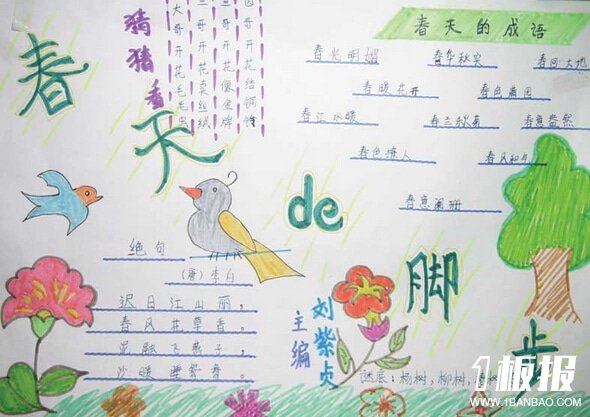 春天de脚步
猜猜看
大哥开花毛毛虫
哥开花卖丝绒
哥开花像金牌
四哥开花结铜铃
春天的成语
春光明媚 春华秋实 春回大地
春暖花开 春色满园
春江水暖 春兰秋菊 春意盎然
春色撩人 春风和气
春意阑珊
绝句
(唐)李白
迟日江山丽，
春风花草香。
泥融飞燕子，
沙暖睡鸳鸯。
主编
刘紫贞
谜底：杨树，柳树，
1板报
WWW.1BANBAO.COM